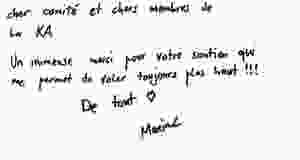 cher comité et chers membres de
la KA
Un immense merci pour votre soutien qui
me permet de voler toujours plus haut !!!
De tout ♡